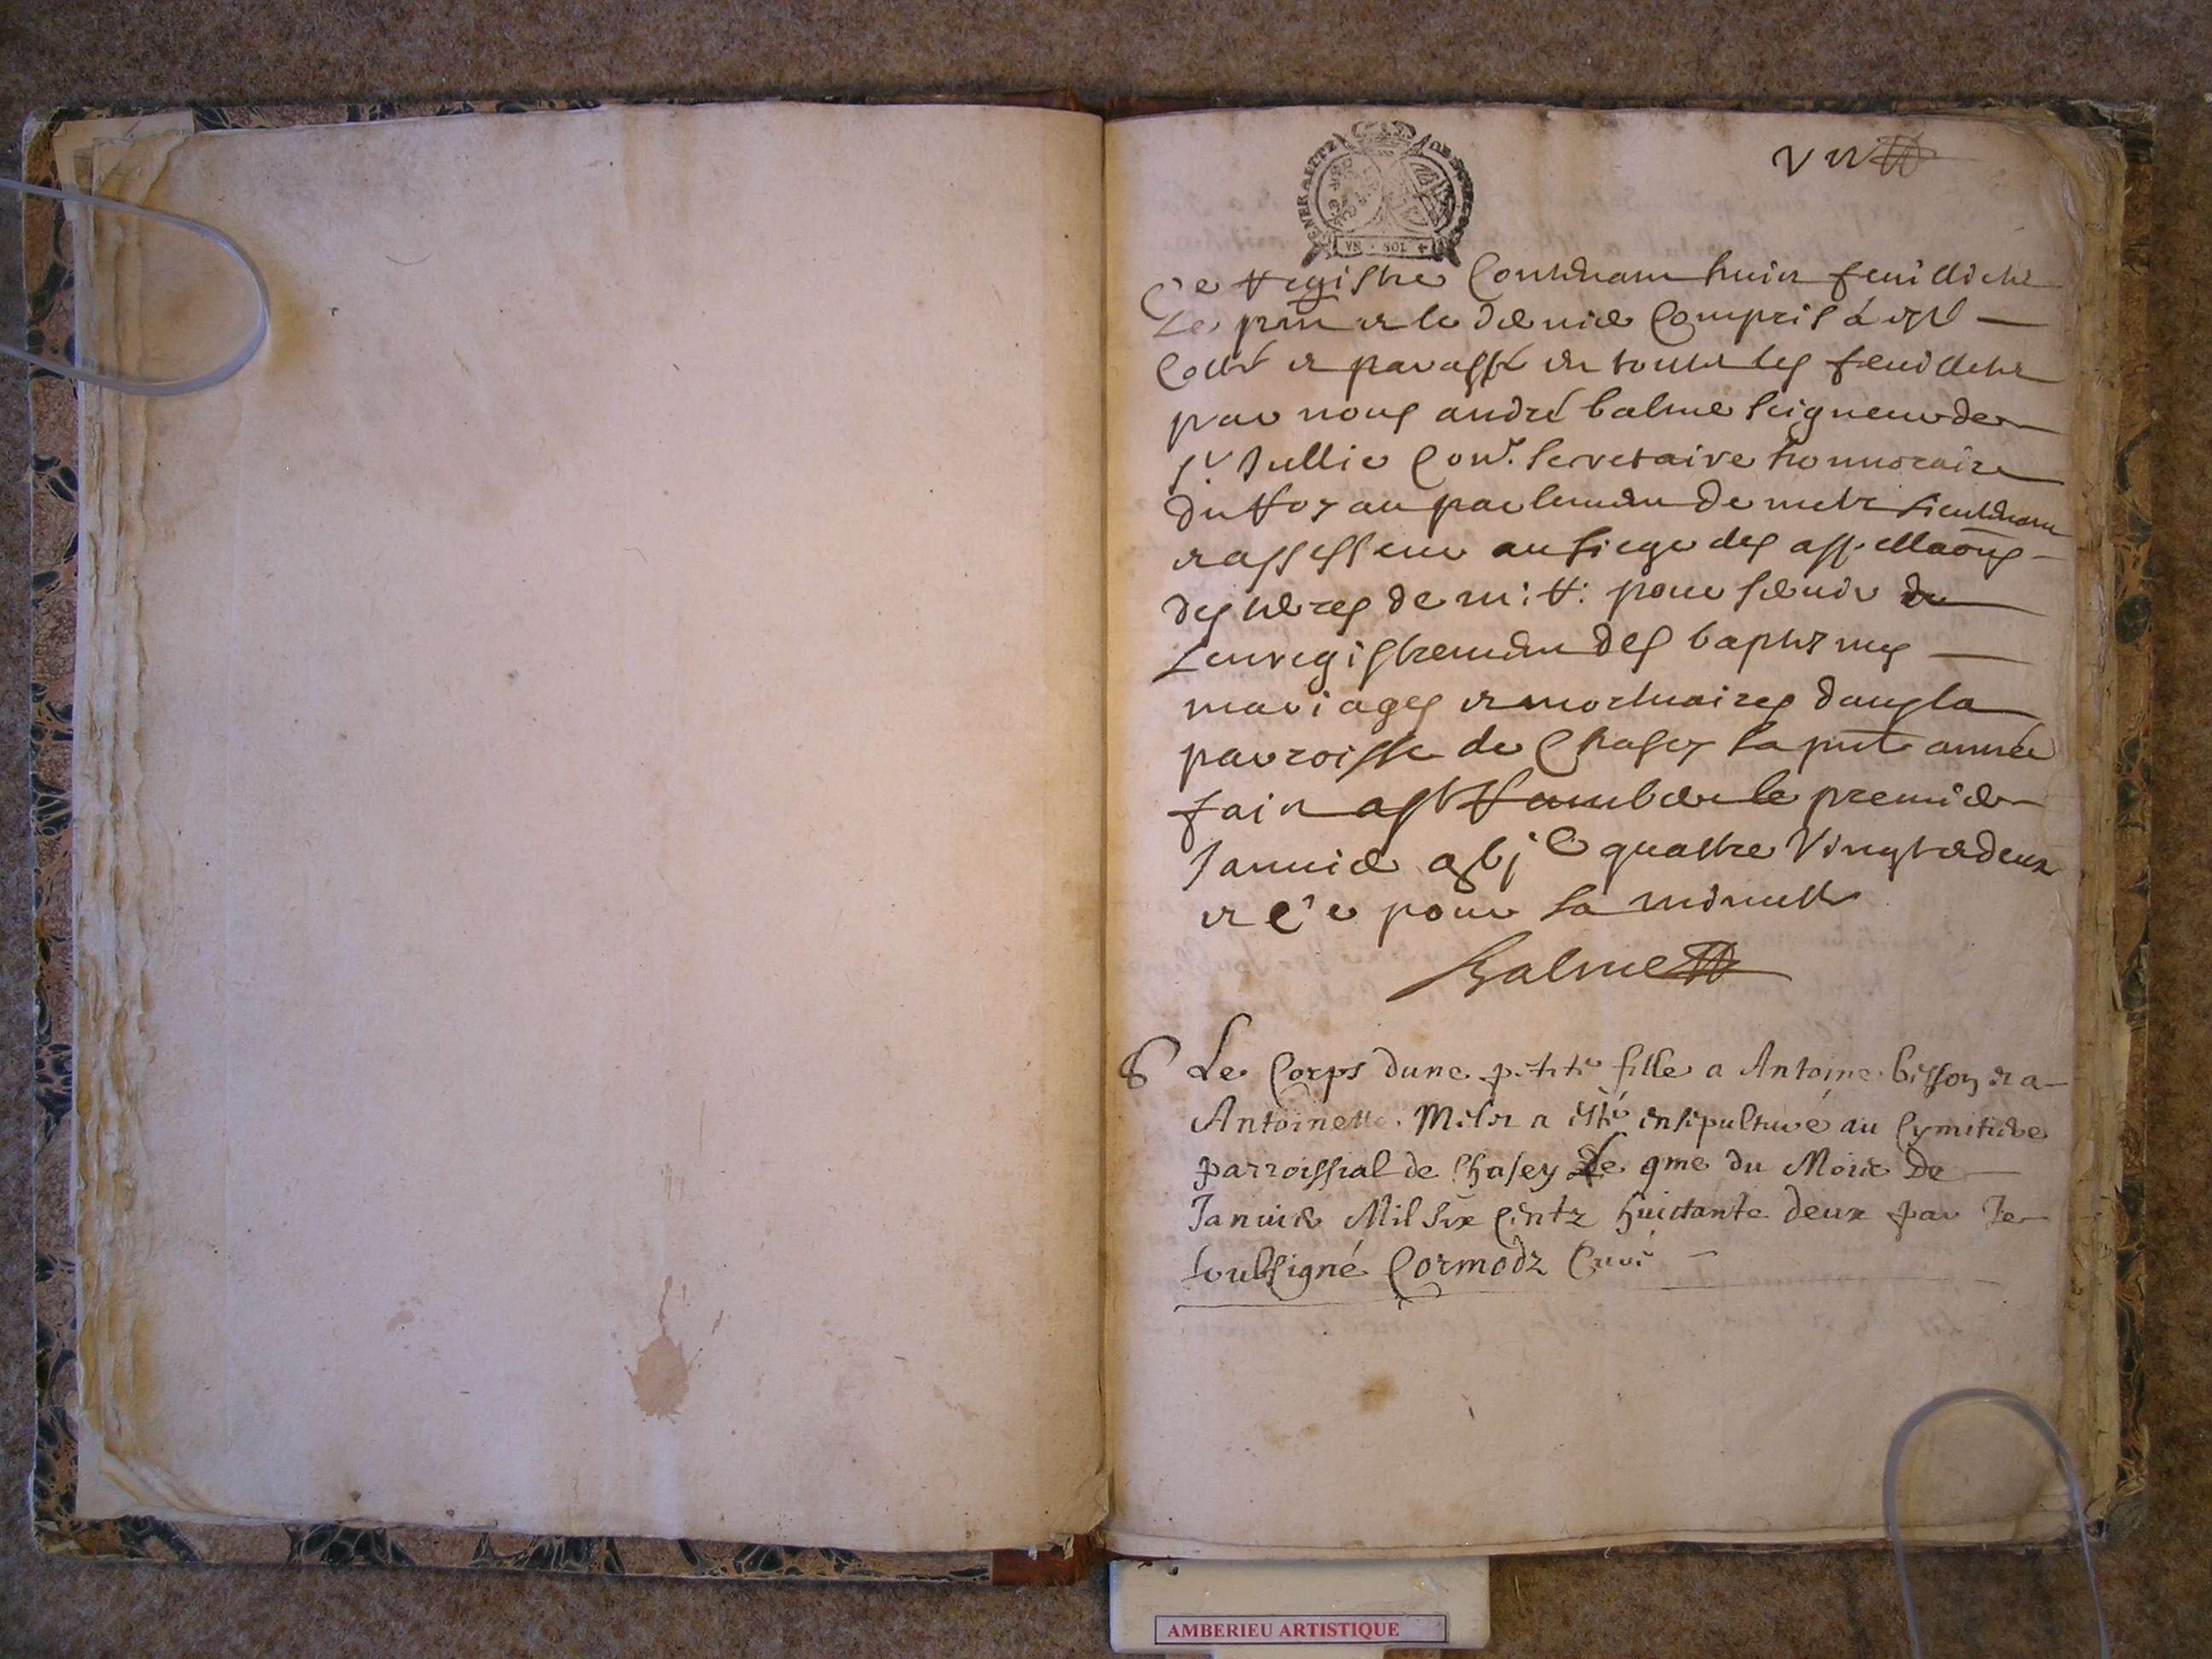 GENERALITE DE
VN · SOL
Vn
Ce Registre Contenant huict feuilletz
Le pnr et le dernier Compris a esté
Cotté et paraffé en toutes les feuilletz
par nous andré balme seigneur de
St Jullie Conr. secretaire honnoraire
du Roy au parlement de metz lieutenant
assesseur au siege des appellaons
des terres de m: R: pour servir de
Lenregistrement des baptesmes
mariages et mortuaires dans la
parroisse de Chasey la pnte année
fait a St Rambert le premier
Januier mbjc quattre Vingt et deux
et Ce pour la minutte
Balme
Le Corps dune petite fille a Antoine bisson et a
Antoinette a esté ensepulturé au Cymitiere
parroissial de Chasey Le 9me du Mois De
Januier Mil Six Centz huictante deux par Je
soubsigné Cormodz Curé
AMBERIEU ARTISTIQUE